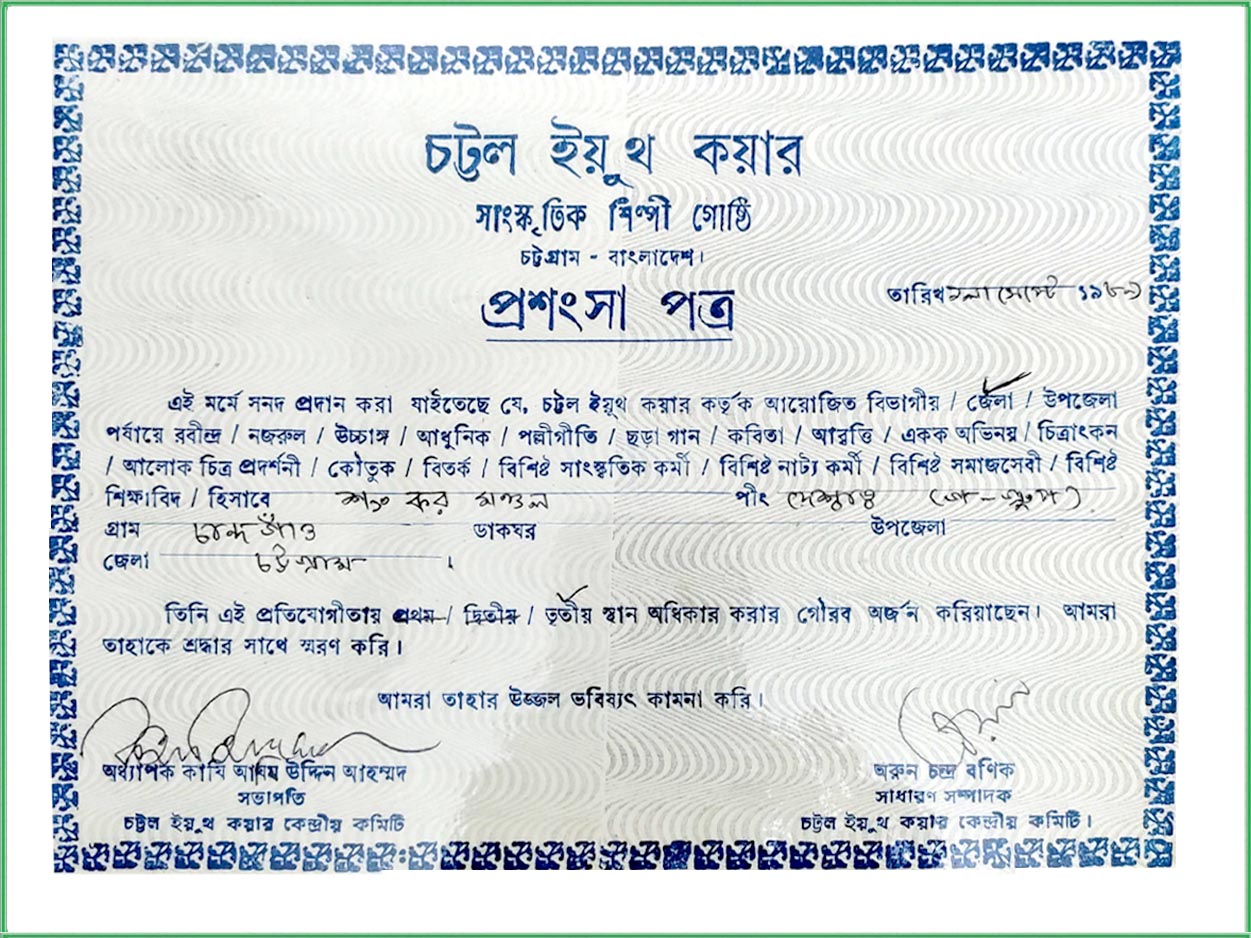 চট্টল ইয়ুথ কয়ার
সাংস্কৃতিক শিল্পী গোষ্ঠি
চট্টগ্রাম - বাংলাদেশ।
প্রশংসা পত্র
তারিখ ১লা সেপ্টে ১৯৮৯
এই মর্মে সনদ প্রদান করা যাইতেছে যে, চট্টল ইয়ুথ কয়ার কর্তৃক আয়োজিত বিভাগীয় / জেলা / উপজেলা
পর্যায়ে রবীন্দ্র / নজরুল / উচ্চাঙ্গ / আধুনিক / পল্লীগীতি / ছড়া গান / কবিতা / আবৃত্তি / একক অভিনয় / চিত্রাংকন
/ আলোক চিত্র প্রদর্শনী / কৌতুক / বিতর্ক / বিশিষ্ট সাংস্কৃতিক কর্মী / বিশিষ্ট নাট্য কর্মী / বিশিষ্ট সমাজসেবী / বিশিষ্ট
শিক্ষাবিদ / হিসাবে শংকর মণ্ডল পীং
গ্রাম চান্দগাঁও ডাকঘর উপজেলা
জেলা চট্টগ্রাম ।
তিনি এই প্রতিযোগীতায় প্রথম / দ্বিতীয় / তৃতীয় স্থান অধিকার করার গৌরব অর্জন করিয়াছেন। আমরা
তাহাকে শ্রদ্ধার সাথে স্মরণ করি।
আমরা তাহার উজ্জল ভবিষ্যৎ কামনা করি।
অধ্যাপক কাযি আযিম উদ্দিন আহম্মদ
সভাপতি
চট্টল ইয়ুথ কয়ার কেন্দ্রীয় কমিটি
অরুন চন্দ্র বণিক
সাধারণ সম্পাদক
চট্টল ইয়ুথ কয়ার কেন্দ্রীয় কমিটি।